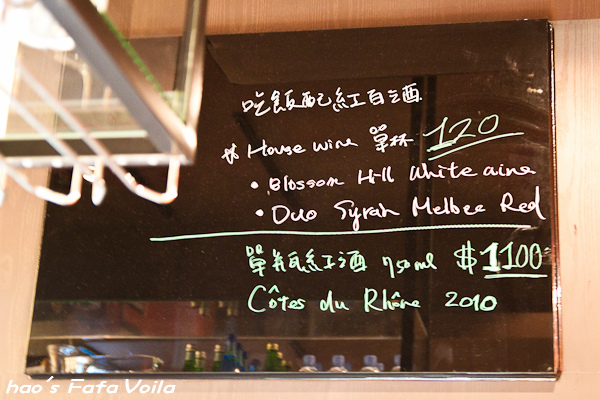 吃飯配紅白酒
# House wine 單杯 120
• Blossom Hill White wine
• Duo Syrah Melbee Red
單瓶紅酒 750ml $1100
Côtes du Rhône 2010
hao's Fafa Voila